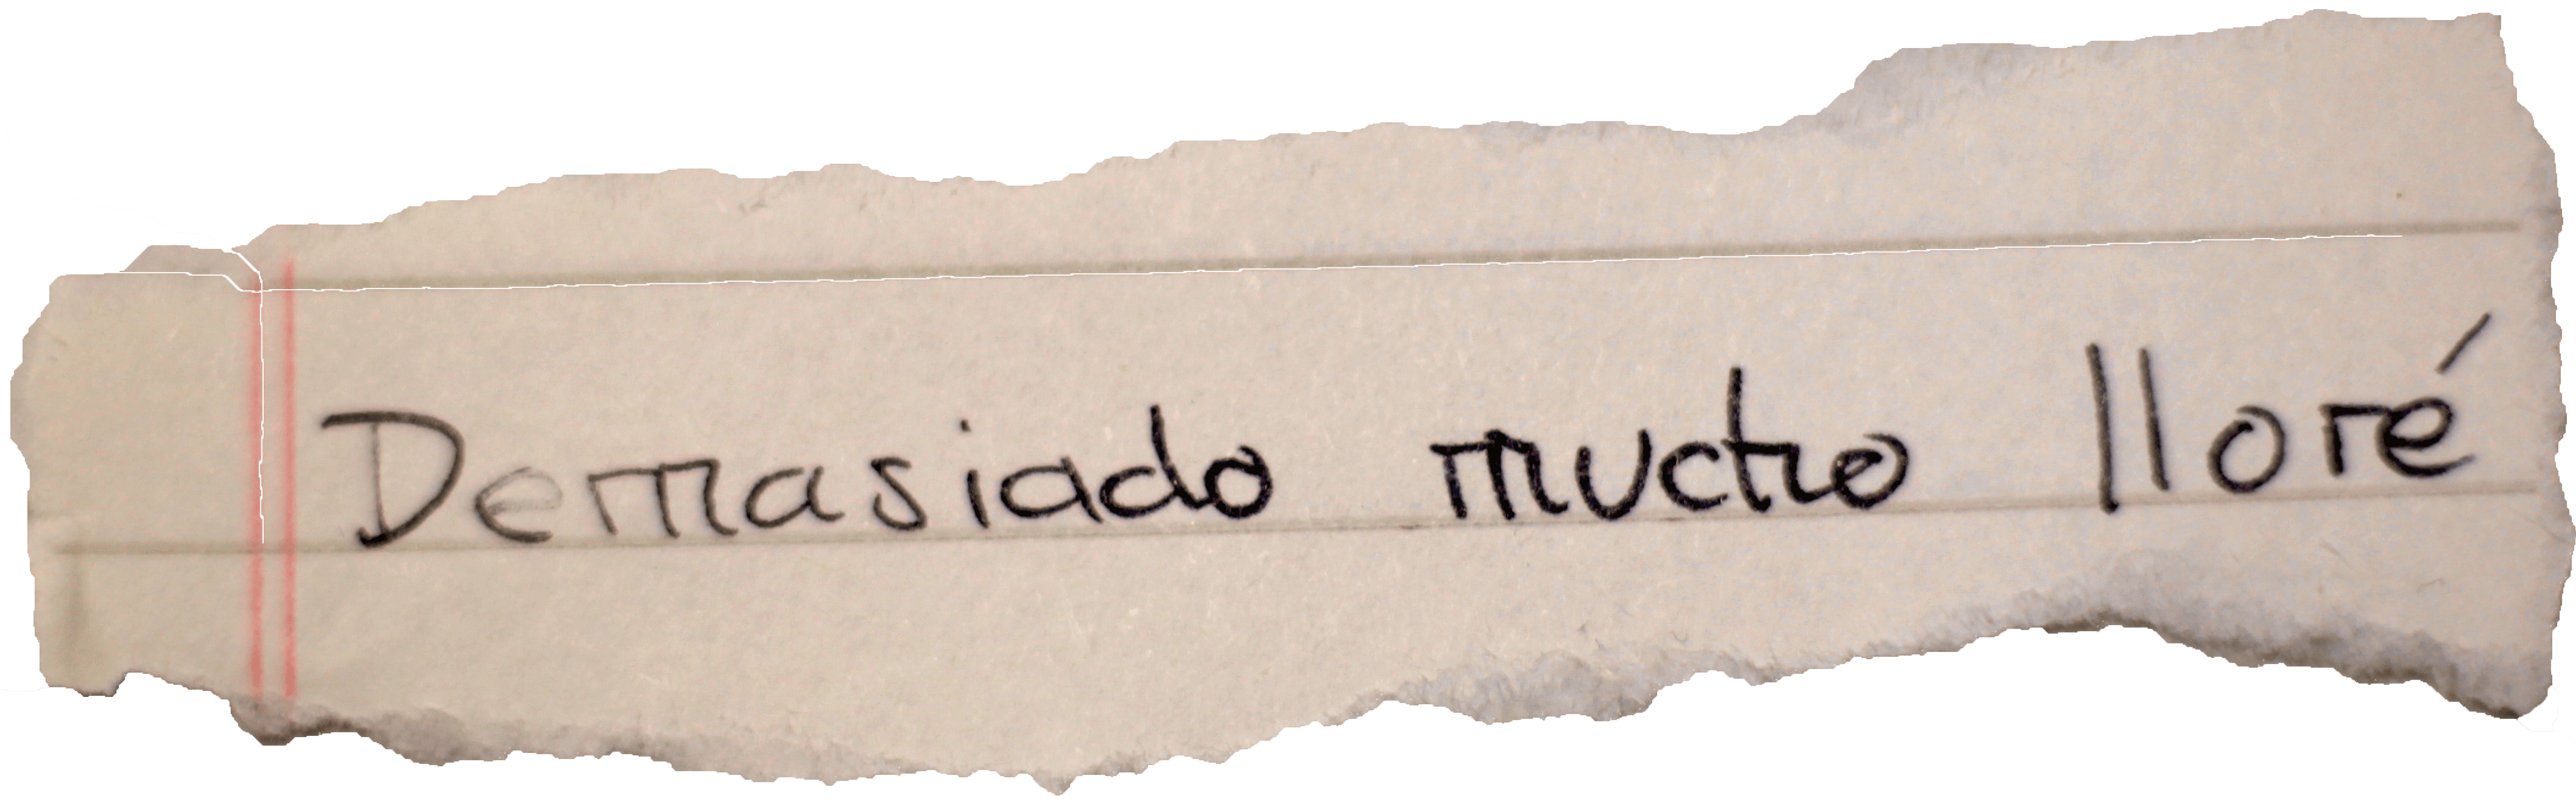 Demasiado mucho lloré